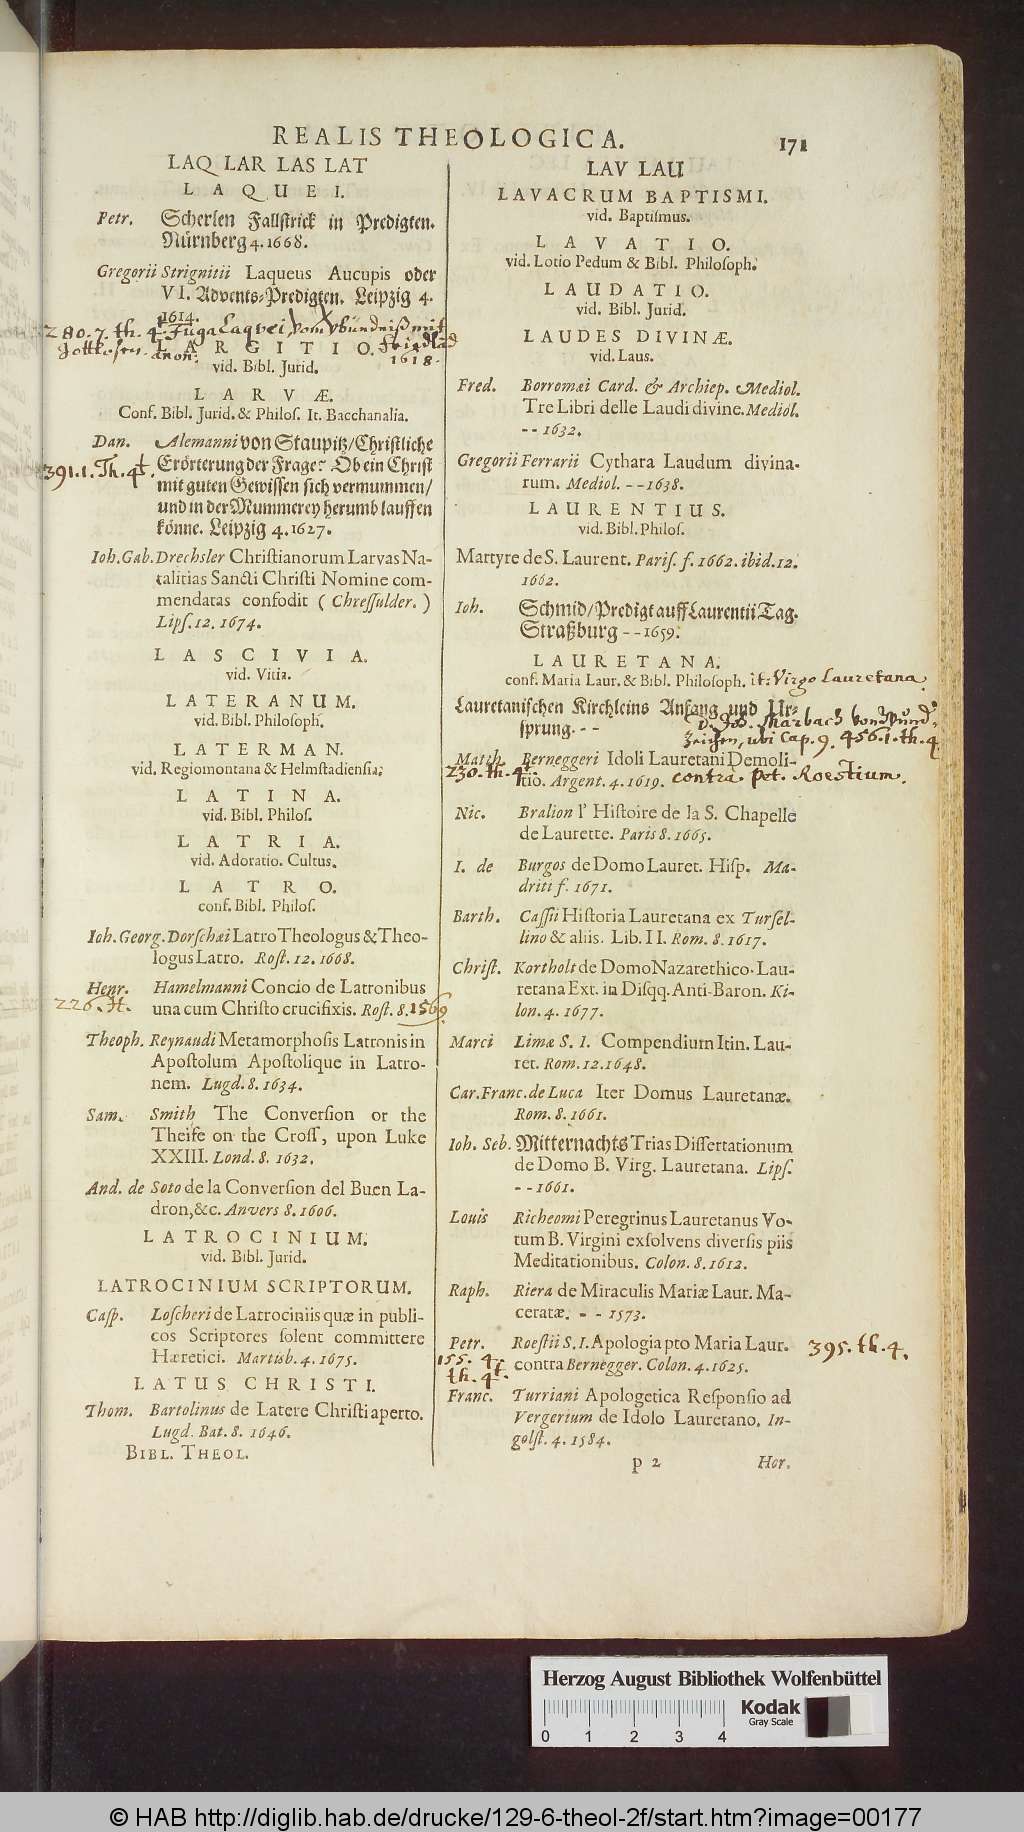 REALIS THEOLOGICA.
171
LAQ LAR LAS LAT
LAQUEI.
Petr. Scherlen Fallſtrick in Predigten.
Nürnberg 4. 1668.
Gregorii Strignitii Laqueus Aucupis oder
VI. Advents-Predigten. Leipzig 4.
1614.
280. 7. th. 4. Fuga Laqvei, vom
anon.
1618.
LARGITIO.
vid. Bibl. Jurid.
LARVÆ.
Conf. Bibl. Jurid. & Philoſ. It. Bacchanalia.
Dan. Alemanni von Staupitz/Chriſtliche
391. 1. Th. 4t. Erörterung der Frage: Ob ein Chriſt
mit guten Gewiſſen ſich vermummen/
und in der Mummerey herumb lauffen
könne. Leipzig 4. 1627.
Ioh. Gab. Drechsler Chriſtianorum Larvas Na-
talitias Sancti Chriſti Nomine com-
mendatas confodit ( Chreſſulder. )
Lipſ. 12. 1674.
LASCIVIA.
vid. Vitia.
LATERANUM.
vid. Bibl. Philoſoph.
LATERMAN.
vid. Regiomontana & Helmſtadienſia.
LATINA.
vid. Bibl. Philoſ.
LATRIA.
vid. Adoratio. Cultus.
LATRO.
conf. Bibl. Philoſ.
Ioh. Georg. Dorſchæi Latro Theologus & Theo-
logus Latro. Roſt. 12. 1668.
Henr. Hamelmanni Concio de Latronibus
226. una cum Chriſto crucifixis. Roſt. 8. 1569
Theoph. Reynaudi Metamorphoſis Latronis in
Apoſtolum Apoſtolique in Latro-
nem. Lugd. 8. 1634.
Sam. Smith The Converſion or the
Theife on the Croſſ, upon Luke
XXIII. Lond. 8. 1632.
And. de Soto de la Converſion del Buen La-
dron, &c. Anvers 8. 1606.
LATROCINIUM.
vid. Bibl. Jurid.
LATROCINIUM SCRIPTORUM.
Caſp. Loſcheri de Latrociniis quæ in publi-
cos Scriptores ſolent committere
Hæretici. Martisb. 4. 1675.
LATUS CHRISTI.
Thom. Bartolinus de Latere Chriſti aperto.
Lugd. Bat. 8. 1646.
BIBL. THEOL.
LAV LAU
LAVACRUM BAPTISMI.
vid. Baptiſmus.
LAVATIO.
vid. Lotio Pedum & Bibl. Philoſoph.
LAUDATIO.
vid. Bibl. Jurid.
LAUDES DIVINÆ.
vid. Laus.
Fred. Borromæi Card. & Archiep. Mediol.
Tre Libri delle Laudi divine. Mediol.
-- 1632.
Gregorii Ferrarii Cythara Laudum divina-
rum. Mediol. -- 1638.
LAURENTIUS.
vid. Bibl. Philoſ.
Martyre de S. Laurent. Pariſ. f. 1662. ibid. 12.
1662.
Ioh. Schmid/Predigt auff Laurentii Tag.
Straßburg -- 1659.
LAURETANA.
conf. Maria Laur. & Bibl. Philoſoph. it: Virgo Lauretana.
Lauretaniſchen Kirchleins Anfang und Ur-
ſprung. --
D. Joh. Marbach von Wund-
zeichen, ubi Cap. 9. 456. 1. th. 4.
Matth. Berneggeri Idoli Lauretani Demoli-
230. th. 4. tio. Argent. 4. 1619. contra Pet. Roestium.
Nic. Bralion l' Hiſtoire de la S. Chapelle
de Laurette. Paris 8. 1665.
I. de Burgos de Domo Lauret. Hiſp. Ma-
driti f. 1671.
Barth. Caſſii Hiſtoria Lauretana ex Turſel-
lino & aliis. Lib. II. Rom. 8. 1617.
Chriſt. Kortholt de Domo Nazarethico-Lau-
retana Ext. in Diſqq. Anti-Baron. Ki-
lon. 4. 1677.
Marci Limæ S. I. Compendium Itin. Lau-
ret. Rom. 12. 1648.
Car. Franc. de Luca Iter Domus Lauretanæ.
Rom. 8. 1661.
Ioh. Seb. Mitternachts Trias Diſſertationum
de Domo B. Virg. Lauretana. Lipſ.
-- 1661.
Louis Richeomi Peregrinus Lauretanus Vo-
tum B. Virgini exſolvens diverſis piis
Meditationibus. Colon. 8. 1612.
Raph. Riera de Miraculis Mariæ Laur. Ma-
ceratæ. -- 1573.
Petr. Roeſtii S. I. Apologia pro Maria Laur. 395. th. 4.
155. 4. contra Bernegger. Colon. 4. 1625.
th. 4t.
Franc. Turriani Apologetica Reſponſio ad
Vergerium de Idolo Lauretano. In-
golſt. 4. 1584.
p 2
Hor.
Herzog August Bibliothek Wolfenbüttel
Kodak
Gray Scale
0 1 2 3 4
© HAB http://diglib.hab.de/drucke/129-6-theol-2f/start.htm?image=00177